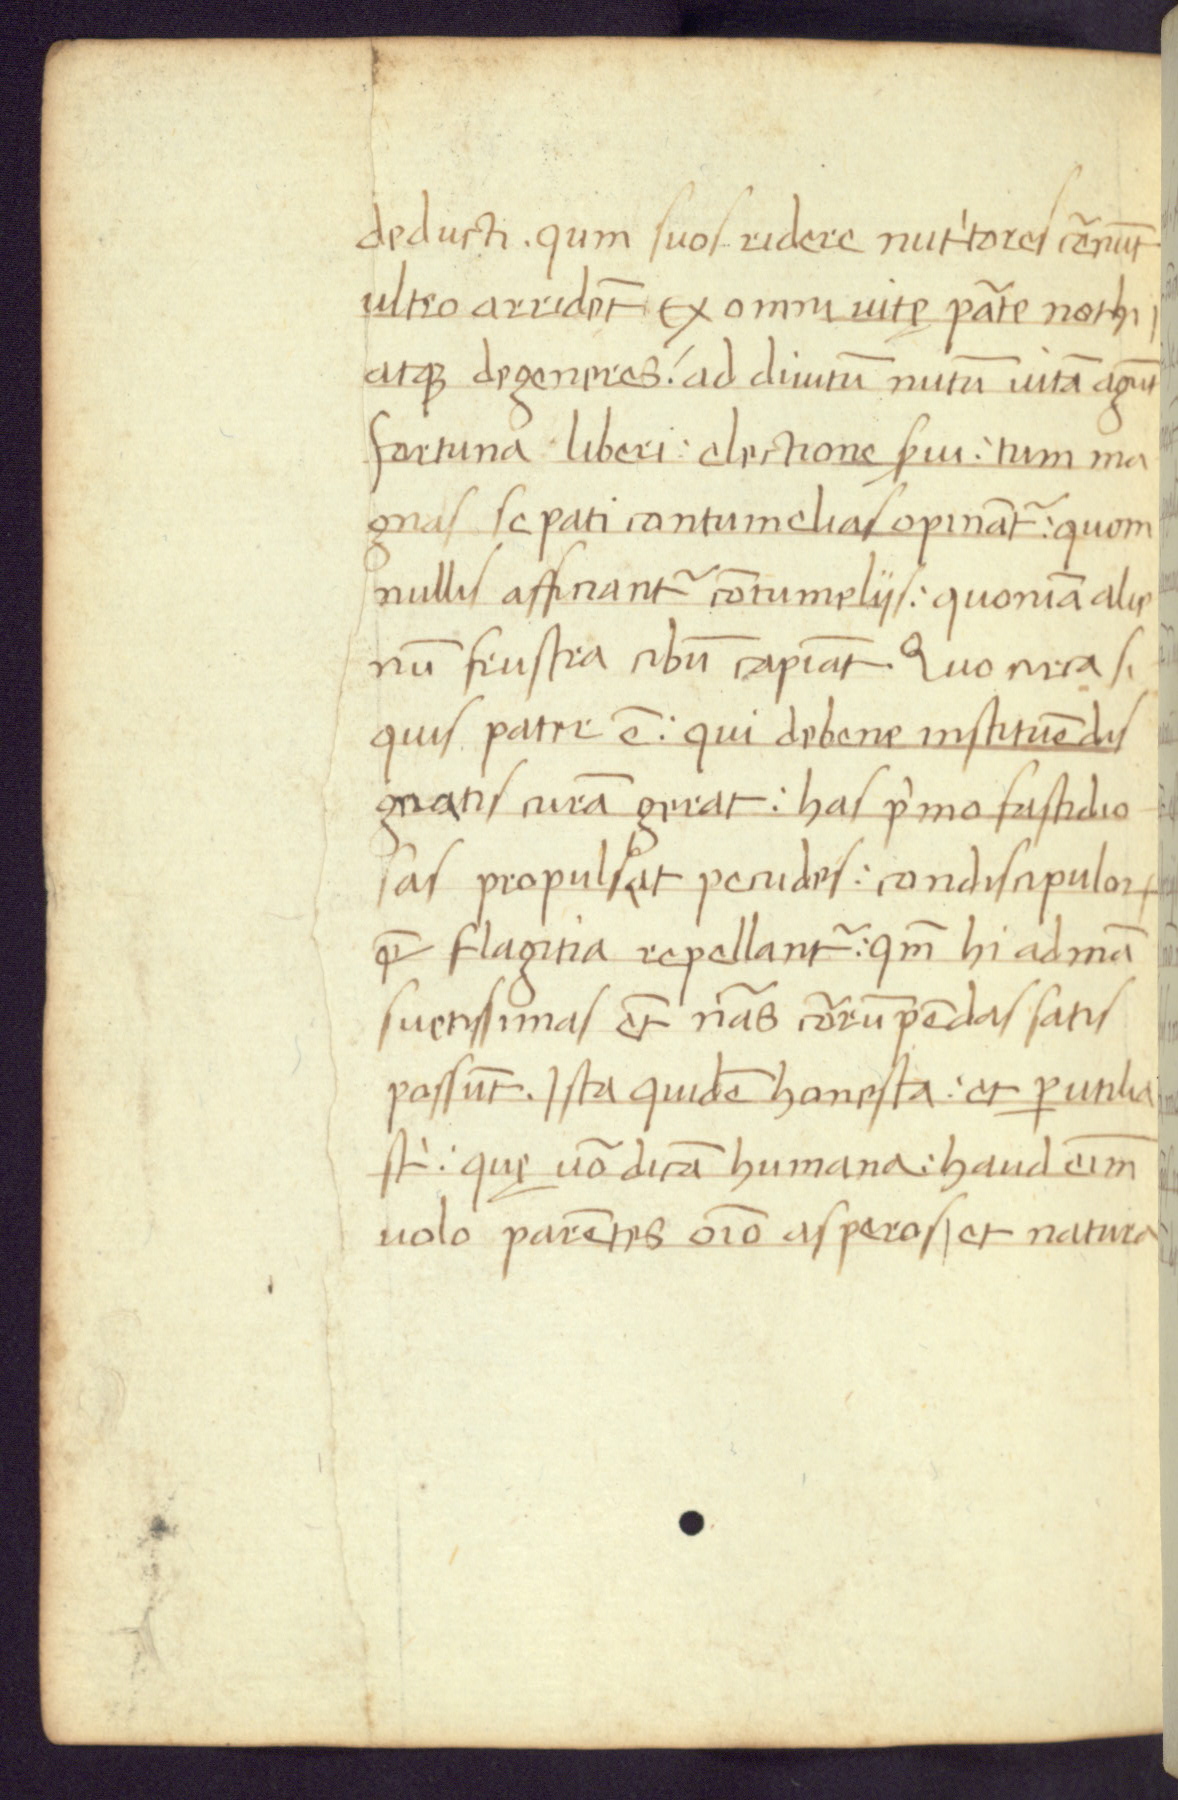 deducti . qum suos ridere nutítores cẽnũt
ultro arridẽt Ex omni uitę pãte nothi
atq; degeneres : ad diuitũ nutũ uitã agũt
fortuna liberi : electione s̃ui : tum ma
gnas se pati contumelias opinãt᷑ : quom
nullis afficiant᷑ cõtumelijs : quoniã alie
nũ frustra cibũ capiãt . Quo circa si
quis pater ẽ : qui de bene instituẽdis
gnatis curã gerat : has p̍mo fastidio
sas propulset pecudes : condiscipulorꝝ
q̃ flagitia repellant᷑ : qm̃ hi ad mã
suetissimas ẽt nãs cõrũpẽdas satis
possũt . Ista quidẽ honesta : et ꝑutilia
st̀ : quę uõ dicã humana : haud eĩm
uolo parẽtes oĩo asperos et natura